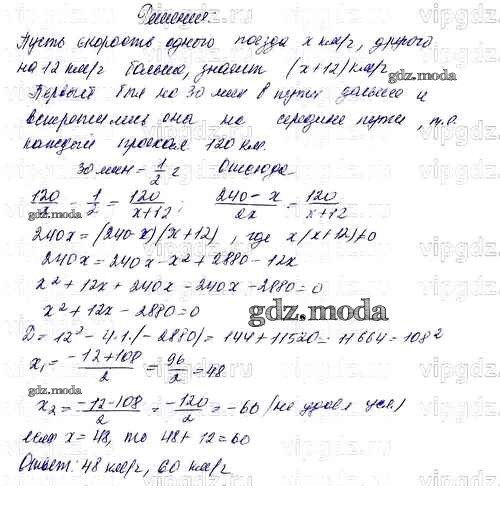 Решение:
Пусть скорость одного поезда x км/ч, другого
на 12 км/ч больше, значит (x+12) км/ч
gdz.moda
Первый был на 30 мин в пути дольше и
встретились они на середине пути, т.е.
каждый проехал 120 км.
30 мин = 1/2 ч Отсюда
120/x - 1/2 = 120/(x+12); (240-x)/2x = 120/(x+12)
gdz.moda
240x = (240-x)(x+12), где x(x+12)≠0
240x = 240x - x² + 2880 - 12x
x² + 12x + 240x - 240x - 2880 = 0
x² + 12x - 2880 = 0
gdz.moda
D = 12² - 4·1·(-2880) = 144 + 11520 = 11664 = 108²
x₁ = (-12+108)/2 = 96/2 = 48
gdz.moda
x₂ = (-12-108)/2 = -120/2 = -60 (не удовл. усл.)
если x = 48, то 48 + 12 = 60
Ответ: 48 км/ч, 60 км/ч